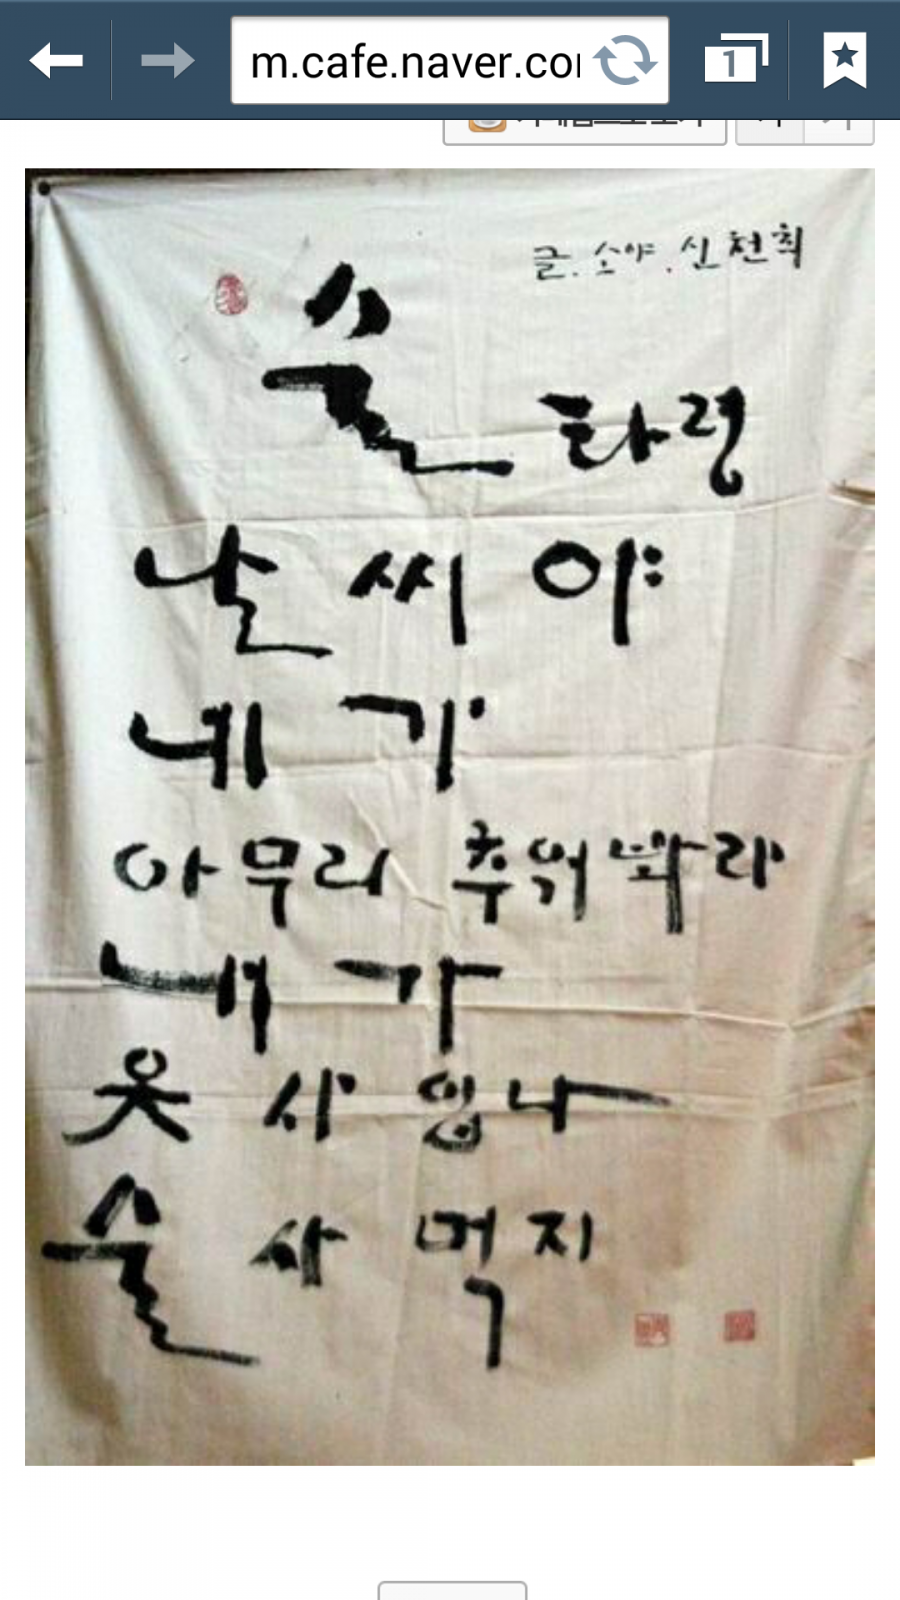 m.cafe.naver.co
1
글. 소야. 신천희
술 타령
날씨야
네가
아무리 추워봐라
내가
옷 사 입나
술 사 먹지